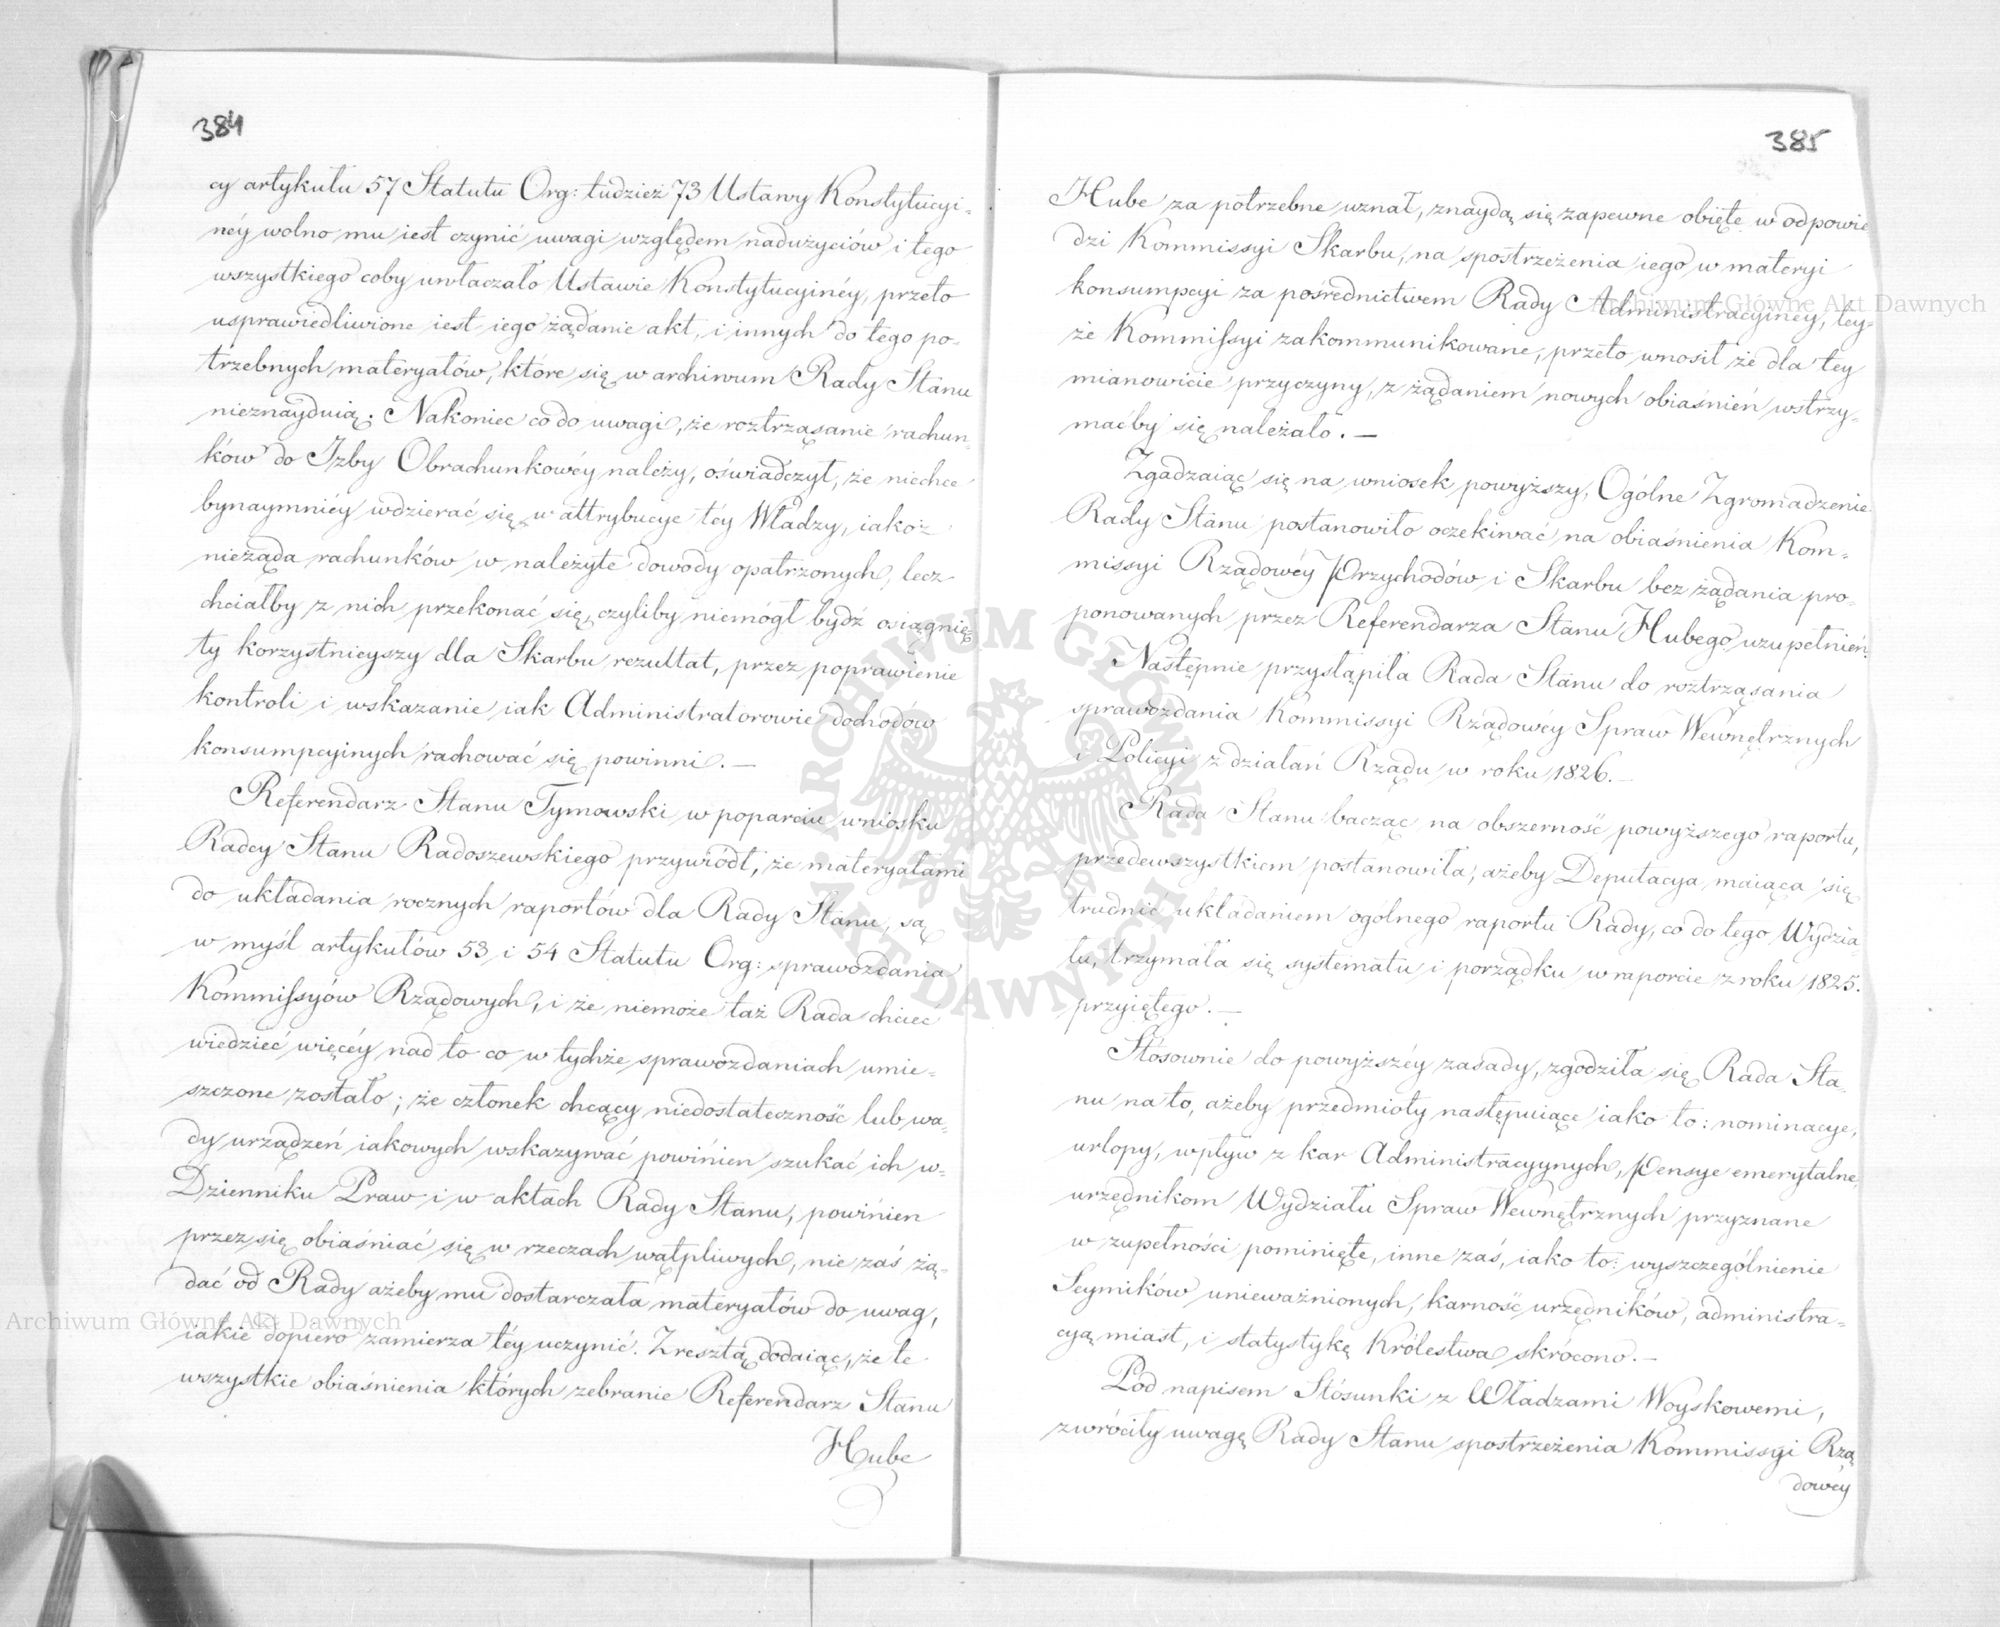 384
cy artykułu 57 Statutu Org: tudzież 73 Ustawy Konstytucyi-
néy wolno mu iest czynić uwagi względem nadużyciów i tego
wszystkiego coby uwłaczało Ustawie Konstytucyinéy, przeto
usprawiedliwione iest iego żądanie akt, i innych do tego po-
trzebnych materyałów, które się w archiwum Rady Stanu
nieznayduią. Nakoniec co do uwagi, że roztrząsanie rachun-
ków do Izby Obrachunkowéy należy, oświadczył, że niechce
bynaymniéy wdzierać się w attrybucye téy Władzy, iakoż
nieżąda rachunków w należyte dowody opatrzonych, lecz
chciałby z nich przekonać się, czyliby niemógł bydź osiągnię
ty korzystnieyszy dla Skarbu rezultat, przez poprawienie
kontroli i wskazanie iak Administratorowie dochodów
konsumpcyinych rachować się powinni. —
Referendarz Stanu Tymowski w poparciu wniosku
Radcy Stanu Radoszewskiego przywiódł, że materyałami
do układania rocznych raportów dla Rady Stanu, są
w myśl artykułów 53 i 54 Statutu Org: sprawozdania
Kommissyów Rządowych, i że niemoże taż Rada chcieć
wiedzieć więcéy nad to co w tychże sprawozdaniach umie-
szczone zostało; że członek chcący niedostateczność lub wa-
dy urządzeń iakowych wskazywać powinien szukać ich w-
Dzienniku Praw i w aktach Rady Stanu, powinien
przez się obiaśniać się w rzeczach wątpliwych, nie zaś żą-
dać od Rady ażeby mu dostarczała materyałów do uwag,
iakie dopiero zamierza téy uczynić. Zresztą dodaiąc, że te
wszystkie obiaśnienia których zebranie Referendarz Stanu
Hube
385
Hube za potrzebne uznał, znaydą się zapewne obięte w odpowie
dzi Kommissyi Skarbu, na spostrzeżenia iego w materyi
konsumpcyi za pośrednictwem Rady Administracyiney, tey-
że Kommissyi zakommunikowane, przeto wnosił że dla tey
mianowicie przyczyny, z żądaniem nowych obiaśnień wstrzy-
maćby się należało. —
Zgadzaiąc się na wniosek powyższy, Ogólne Zgromadzenie
Rady Stanu postanowiło oczekiwać na obiaśnienia Kom-
missyi Rządowéy Przychodów i Skarbu bez żądania pro-
ponowanych przez Referendarza Stanu Hubego uzupełnień.
Następnie przystąpiła Rada Stanu do roztrząsania
sprawozdania Kommissyi Rządowéy Spraw Wewnętrznych
i Policyi z działań Rządu w roku 1826. —
Rada Stanu bacząc na obszerność powyższego raportu,
przedewszystkiem postanowiła, ażeby Deputacya maiąca się
trudnić układaniem ogólnego raportu Rady, co do tego Wydzia-
łu, trzymała się systematu i porządku w raporcie z roku 1825.
przyiętego. —
Stósownie do powyższéy zasady, zgodziła się Rada Sta-
nu na to, ażeby przedmioty następuiące iako to: nominacye,
urlopy, wpływ z kar Administracyynych, pensye emerytalne,
urzędnikom Wydziału Spraw Wewnętrznych przyznane
w zupełności pominięte, inne zaś, iako to: wyszczególnienie
Seymików unieważnionych, karność urzędników, administra-
cyą miast, i statystykę Królestwa skrócono. —
Pod napisem Stósunki z Władzami Woyskowemi,
zwróciły uwagę Rady Stanu spostrzeżenia Kommissyi Rzą
dowéy
Archiwum Główne Akt Dawnych
Archiwum Główne Akt Dawnych
ARCHIWUM GŁÓWNE
AKT DAWNYCH